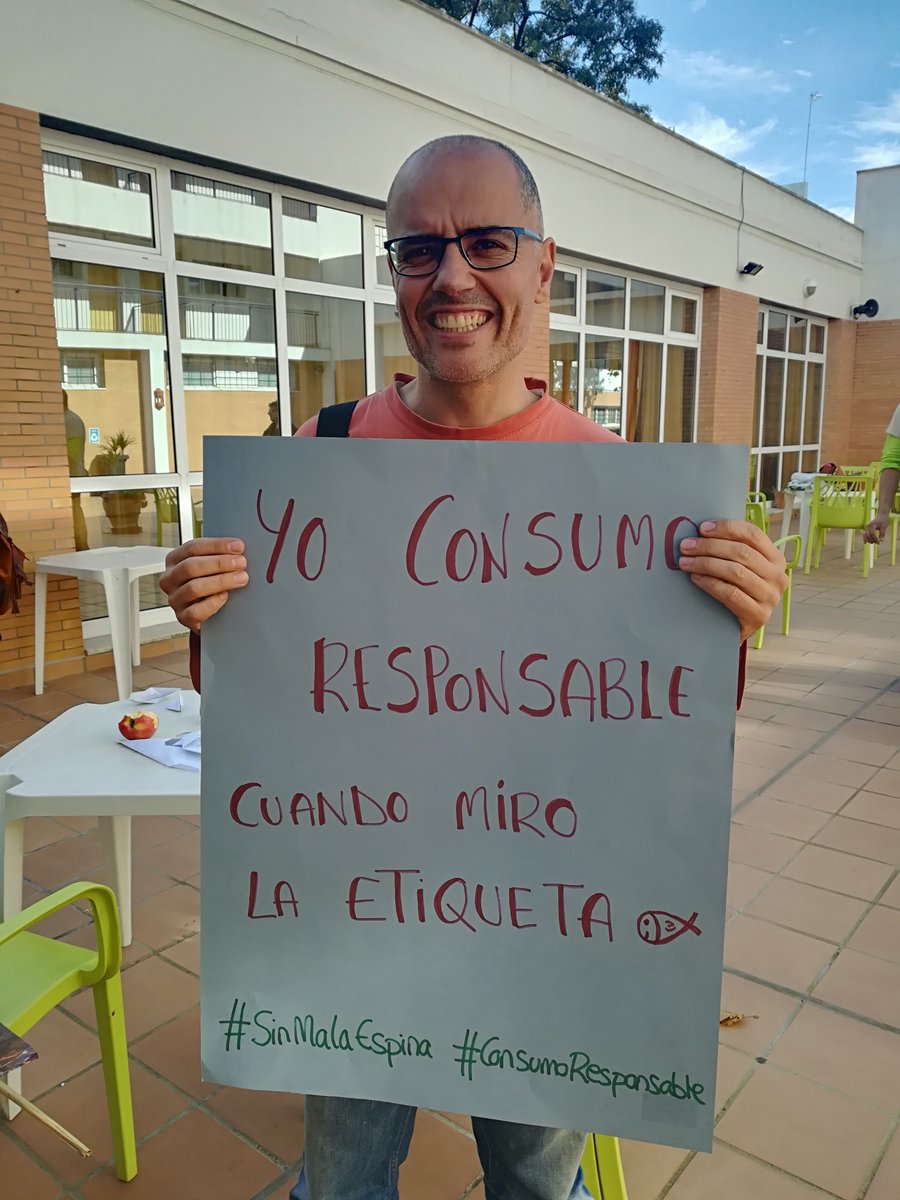 YO CONSUMO
RESPONSABLE
CUANDO MIRO
LA ETIQUETA
#SinMalaEspina #ConsumoResponsable